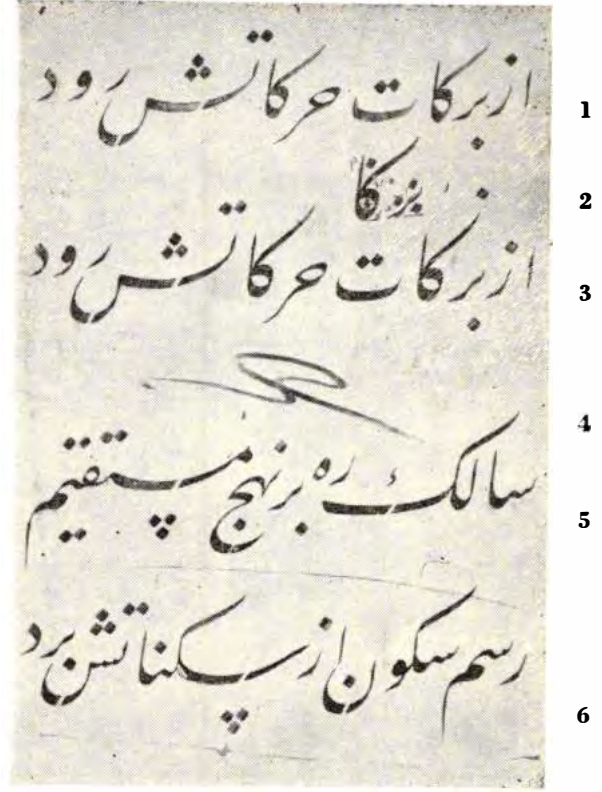 از برکات حرکاتش رود 1
2
از برکات حرکاتش رود 3
4
سالک ره بر نهج مستقیم 5
رسم سکون از سکناتش برد 6